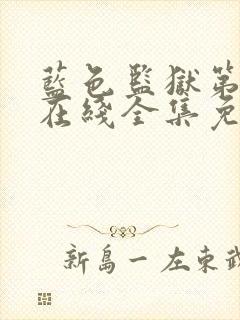 藍色監獄第
在綫全集免
新島一 左東武